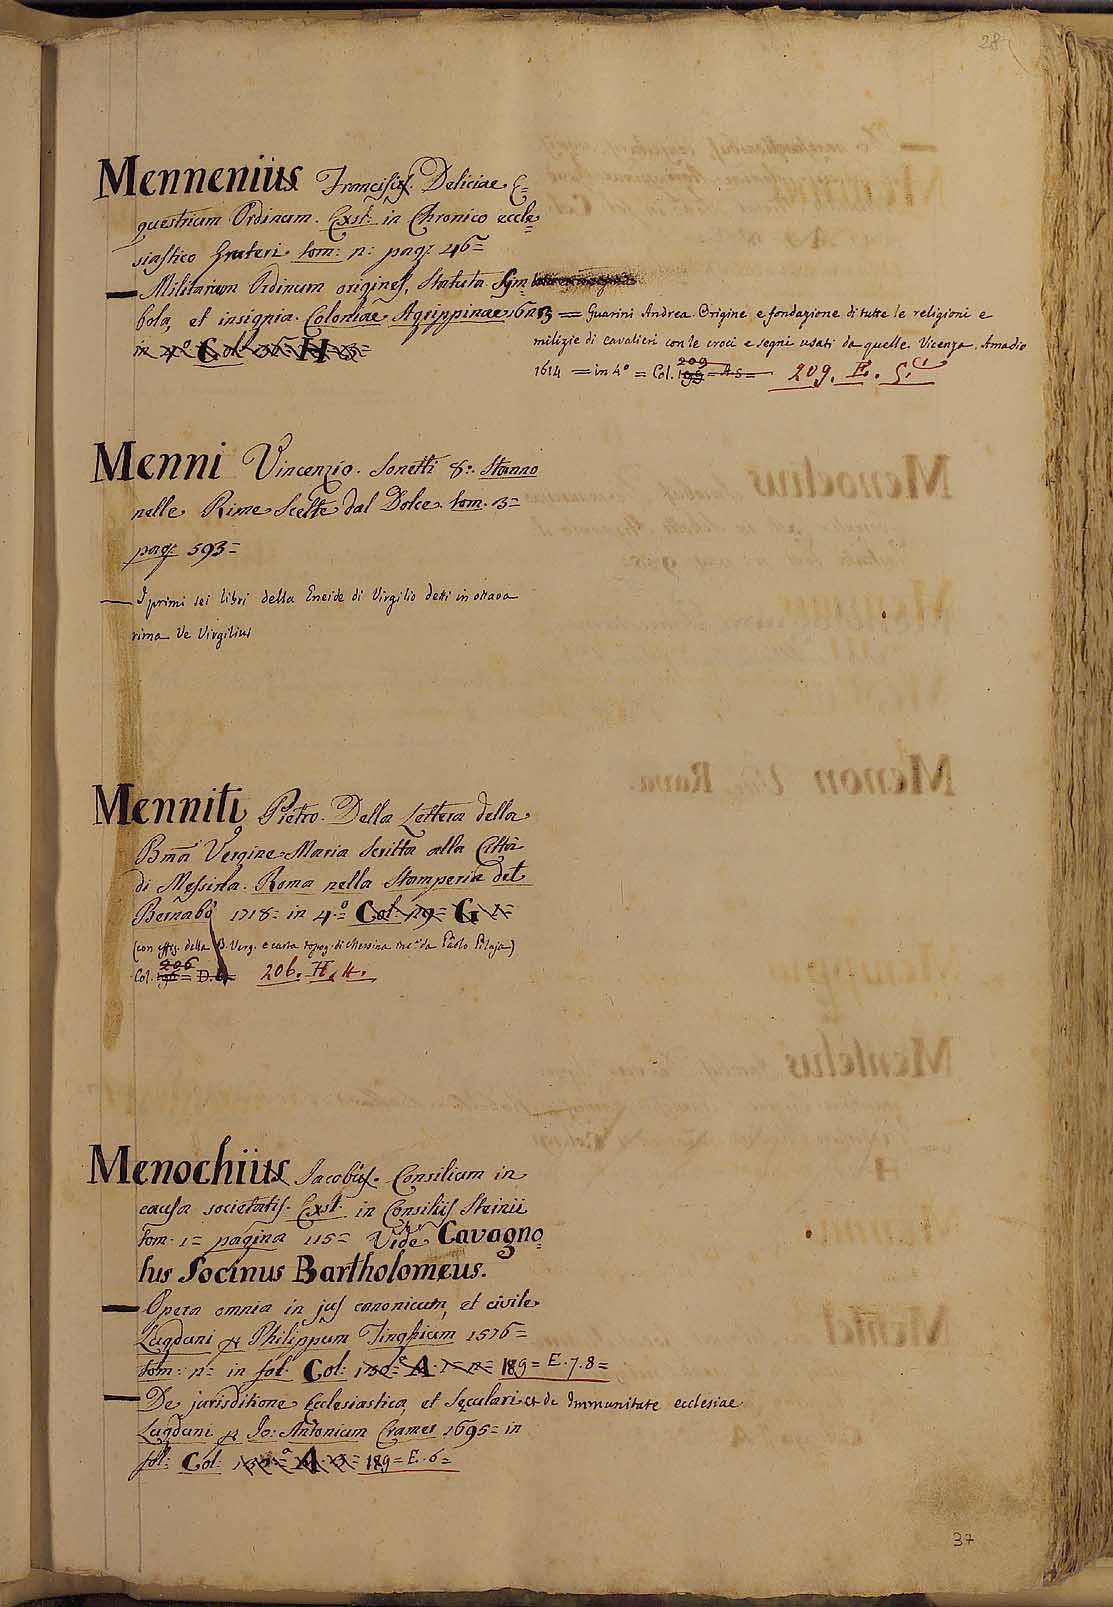 28
Mennenius Franciscus. Deliciae E=
questrium Ordinum. Exst: in Chronico eccle=
siastico Gruteri tom: n: pag: 46=
— Militarium Ordinum origines, Statuta Sym
bola, et insignia. Coloniae Agrippinae 16
in 4° Col: 36 H 3=
= Guarini Andrea. Origine e fondazione di tutte le religioni e
milizie di cavalieri con le croci e segni usati da quelle. Vicenza. Amadio
1614 = in 4° = Col. 199 209 = A.5 = 209. E. 5.
Menni Vincenzio. Sonetti 8: Stanno
nelle Rime Scelte dal Dolce. tom. 3=
pag: 593=
— I primi sei libri della Eneide di Virgilio detti in ottava
rima Ve Virgilius
Menniti Pietro. Della Lettera della
Bma Vergine Maria Scritta alla Città
di Messina. Roma nella Stamperia del
Bernabò 1718= in 4.°= Col: 19= G 1=
(con effig. della B. Verg. e carta topog. di Messina inc.a da Paolo Pilaja)
Col. 196 206 = D.6. 206. H. 4.
Menochius Jacobus. Consilium in
causa societatis. Exst. in Consiliis Steinii
tom. 1= pagina 115= Vide Cavagno=
lus Socinus Bartholomeus.
— Opera omnia in jus canonicum, et civile
Lugduni Philippum Tinghium 1576=
tom: n= in fol: Col: 130= A. 1= n= 189= E. 7. 8=
— De jurisditione Ecclesiastica, et Seculari et de Immunitate ecclesiae
Lugduni Jo: Antonium Cramer 1695= in
fol: Col: A. 189= E. 6=
37